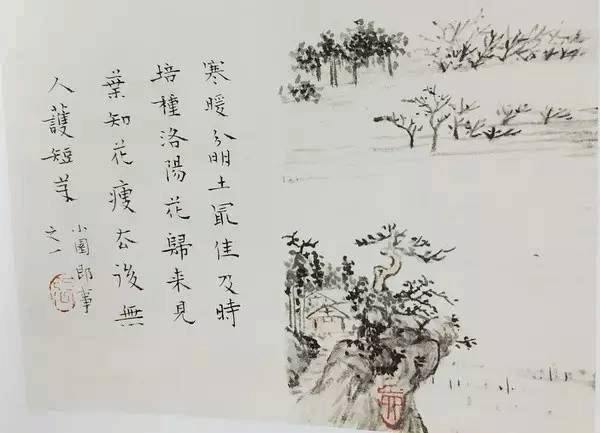 寒暖分明土最佳及時
培種洛陽花歸來見
葉知花瘦去後無
人護短芽
小園即事
之一